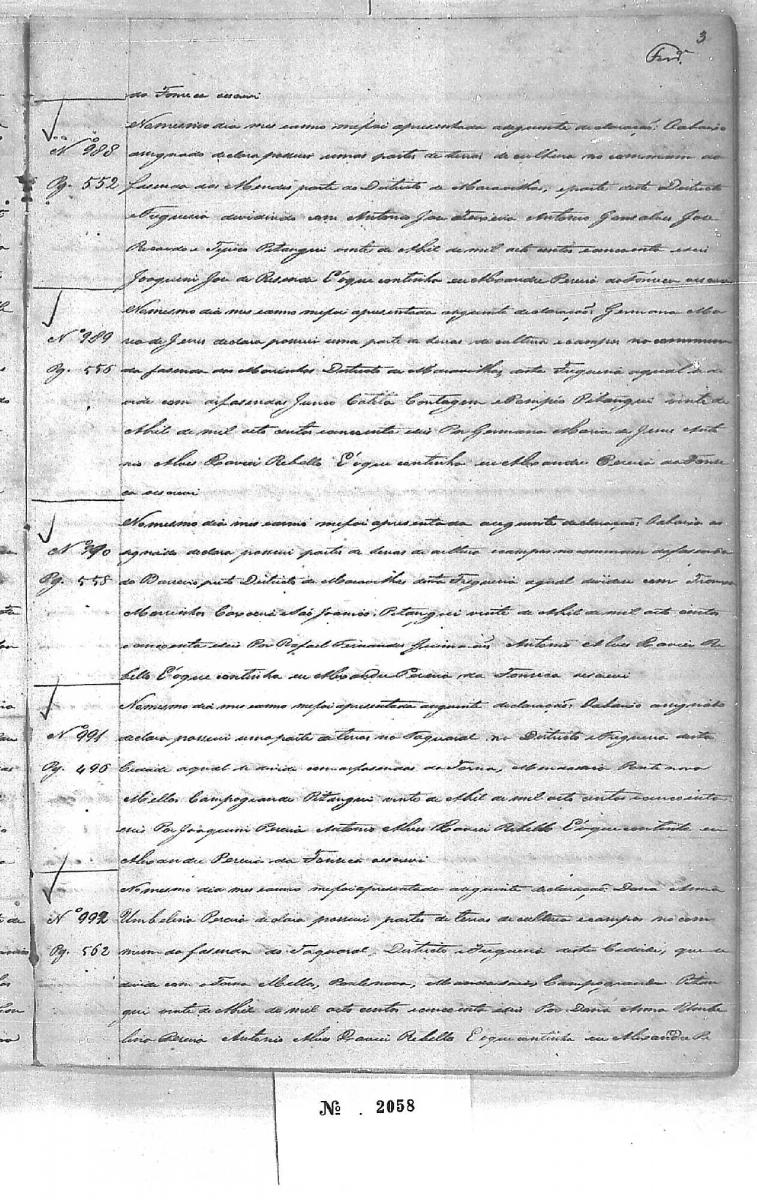 3
da Fonseca escrevi
Nomesmo dia mes eanno mefoi apresentada aseguinte declaração: Oabaixo
Nº 988
assignado declara possuir umas partes de terras de cultura no commum da
Pg. 552
fasenda dos Mendes parte do Districto de Maravilhas, eparte deste Districto
eFreguesia dividindo com Antonio José Ferreira Antonio Gonsalves José
Ricardo e Pitangui vinte de Abril de mil oito centos ecincoenta eseis
Joaquim José de Resende Eoque continha eu Alexandre Pereira da Fonseca escrevi
Nomesmo dia mes eanno mefoi apresentada aseguinte declaração: Germana Ma
Nº 989
ria de Jesus declara possuir uma parte de terras de cultura ecampos no commum
Pg. 556
da fasenda dos Marinhos Districto de Maravilhas, desta Freguesia aqual se di
vide com asfasendas Junco Contagem ePitangui vinte de
Abril de mil oito centos ecincoenta eseis Por Germana Maria de Jesus Anto
nio Alves Rebello Eoque continha eu Alexandre Pereira da Fonse
ca escrevi
Nomesmo dia mes eanno mefoi apresentada aseguinte declaração: Oabaixo as
Nº 990
signado declara possuir partes de terras de cultura ecampos no commum dafasenda
Pg. 558
do Barreiro Districto de Maravilhas desta Freguesia aqual divide com
Marinhos São Joanico. Pitangui vinte de Abril de mil oito centos
e cincoenta eseis Por Rafael Fernandes Antonio Alves Re
bello Eoque continha eu Alexandre Pereira da Fonseca escrevi
Nomesmo dia mes eanno mefoi apresentada aseguinte declaração: Oabaixo assignado
Nº 991
declara possuir uma parte de terras no Taquaral no Districto eFreguesia desta
Pg. 496
Cidade aqual se divide com asfasendas do Ponte nova
Mello, Campogrande Pitangui vinte de Abril de mil oito centos ecincoenta
eseis Por Joaquim Pereira Antonio Alves Rebello Eoque continha eu
Alexandre Pereira da Fonseca escrevi
Nomesmo dia mes eanno mefoi apresentada aseguinte declaração: Dona Anna
Nº 992
Umbelina Pereira declara possuir partes de terras de cultura ecampos no com
Pg. 562
mum da fasenda do Taquaral, Districto eFreguesia desta Cidade, que se
divide com Mello, Pontenova, Campogrande Pitan
gui vinte de Abril de mil oito centos ecincoenta eseis Por Dona Anna Umbe
lina Pereira Antonio Alves Rebello Eoque continha eu Alexandre Pe
Nº . 2058